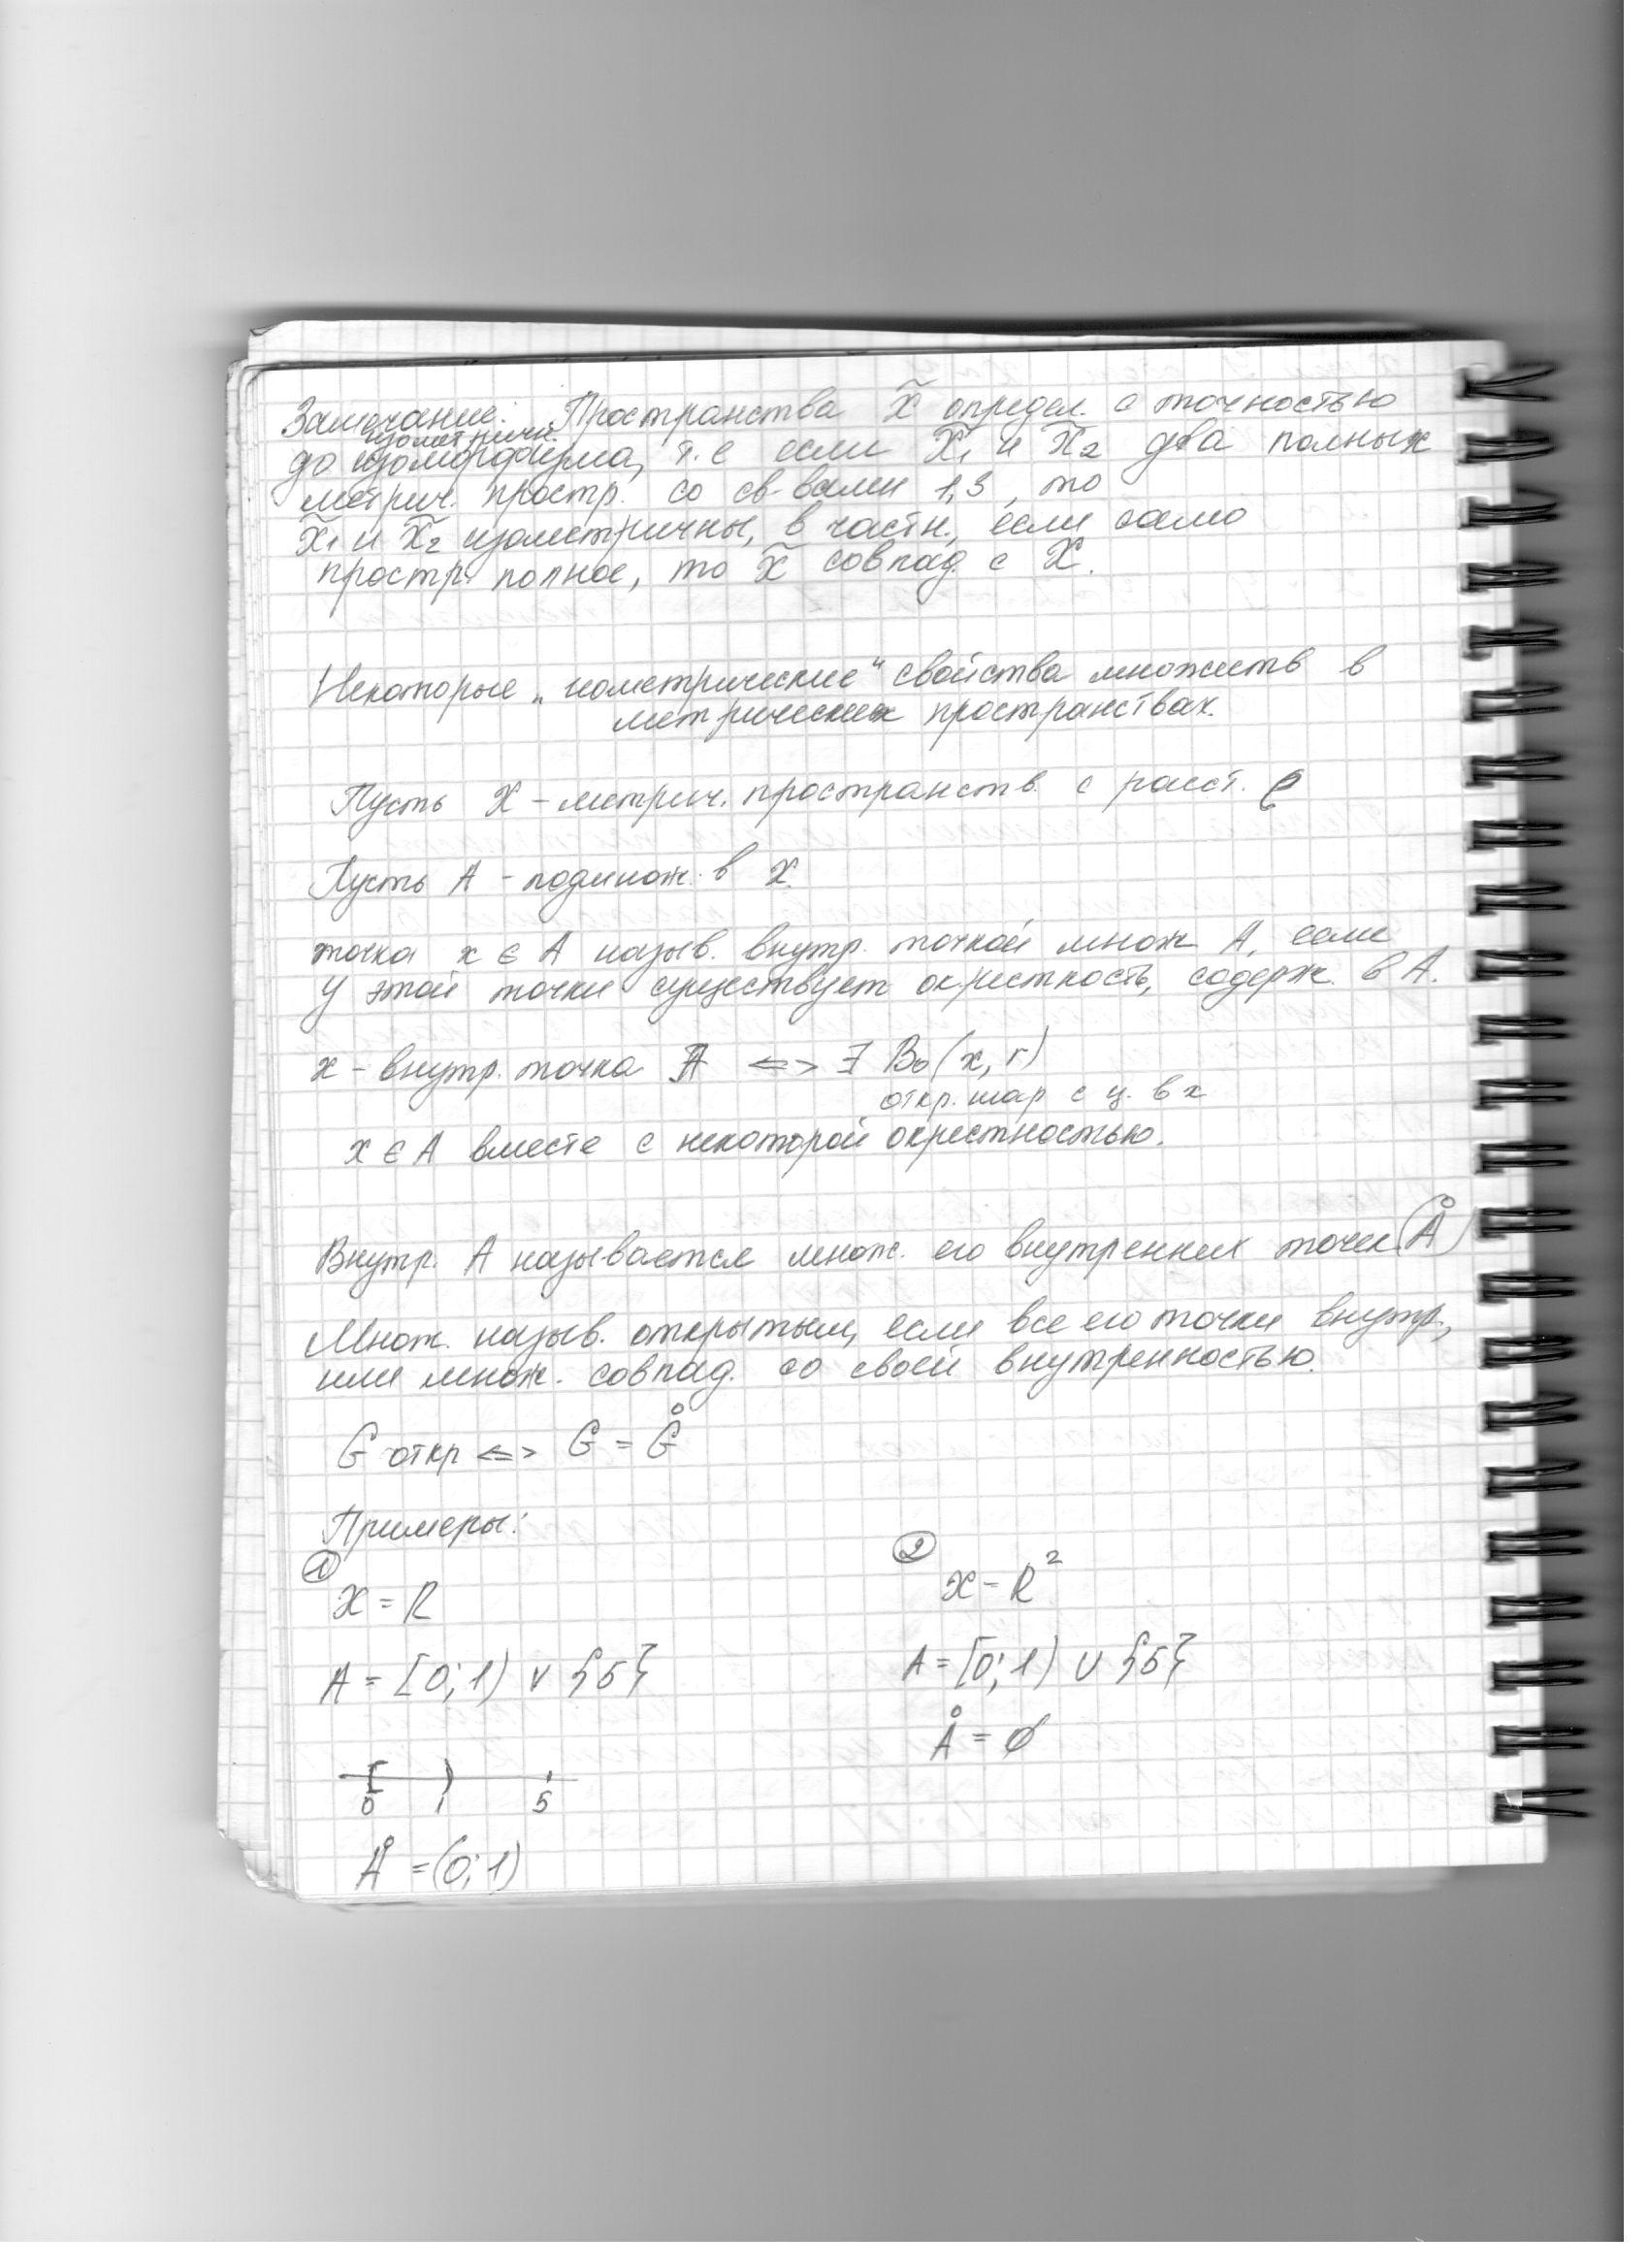 Замечание: Пространства X̃ определ. с точностью
изометричн.
до изоморфизма, т.е если X̃₁ и X̃₂ два полных
метрич. простр. со св-вами 1,3, то
X̃₁ и X̃₂ изометричны, в частн., если само
простр. полное, то X̃ совпад. с X.
Некоторые „ "свойства множеств в
метрических пространствах.
Пусть X – метрич. пространств. с расст. ρ
Пусть A – подмнож. в X.
точка x ∈ A назыв. внутр. точкой множ A, если
у этой точки существует окрестность, содерж. в A.
x – внутр. точка A <=> ∃ B₀(x, r)
откр. шар с ц. в x
x ∈ A вместе с некоторой окрестностью.
Внутр. A называется множ. его внутренних точек (Å)
Множ. назыв. открытым, если все его точки внутр.,
или множ. совпад. со своей внутренностью.
G откр <=> G = G̊
Примеры:
① ②
X = R X = R²
A = [0; 1) ∪ {5} A = [0; 1) ∪ {5}
Å = ∅
0 1 5
Å = (0; 1)